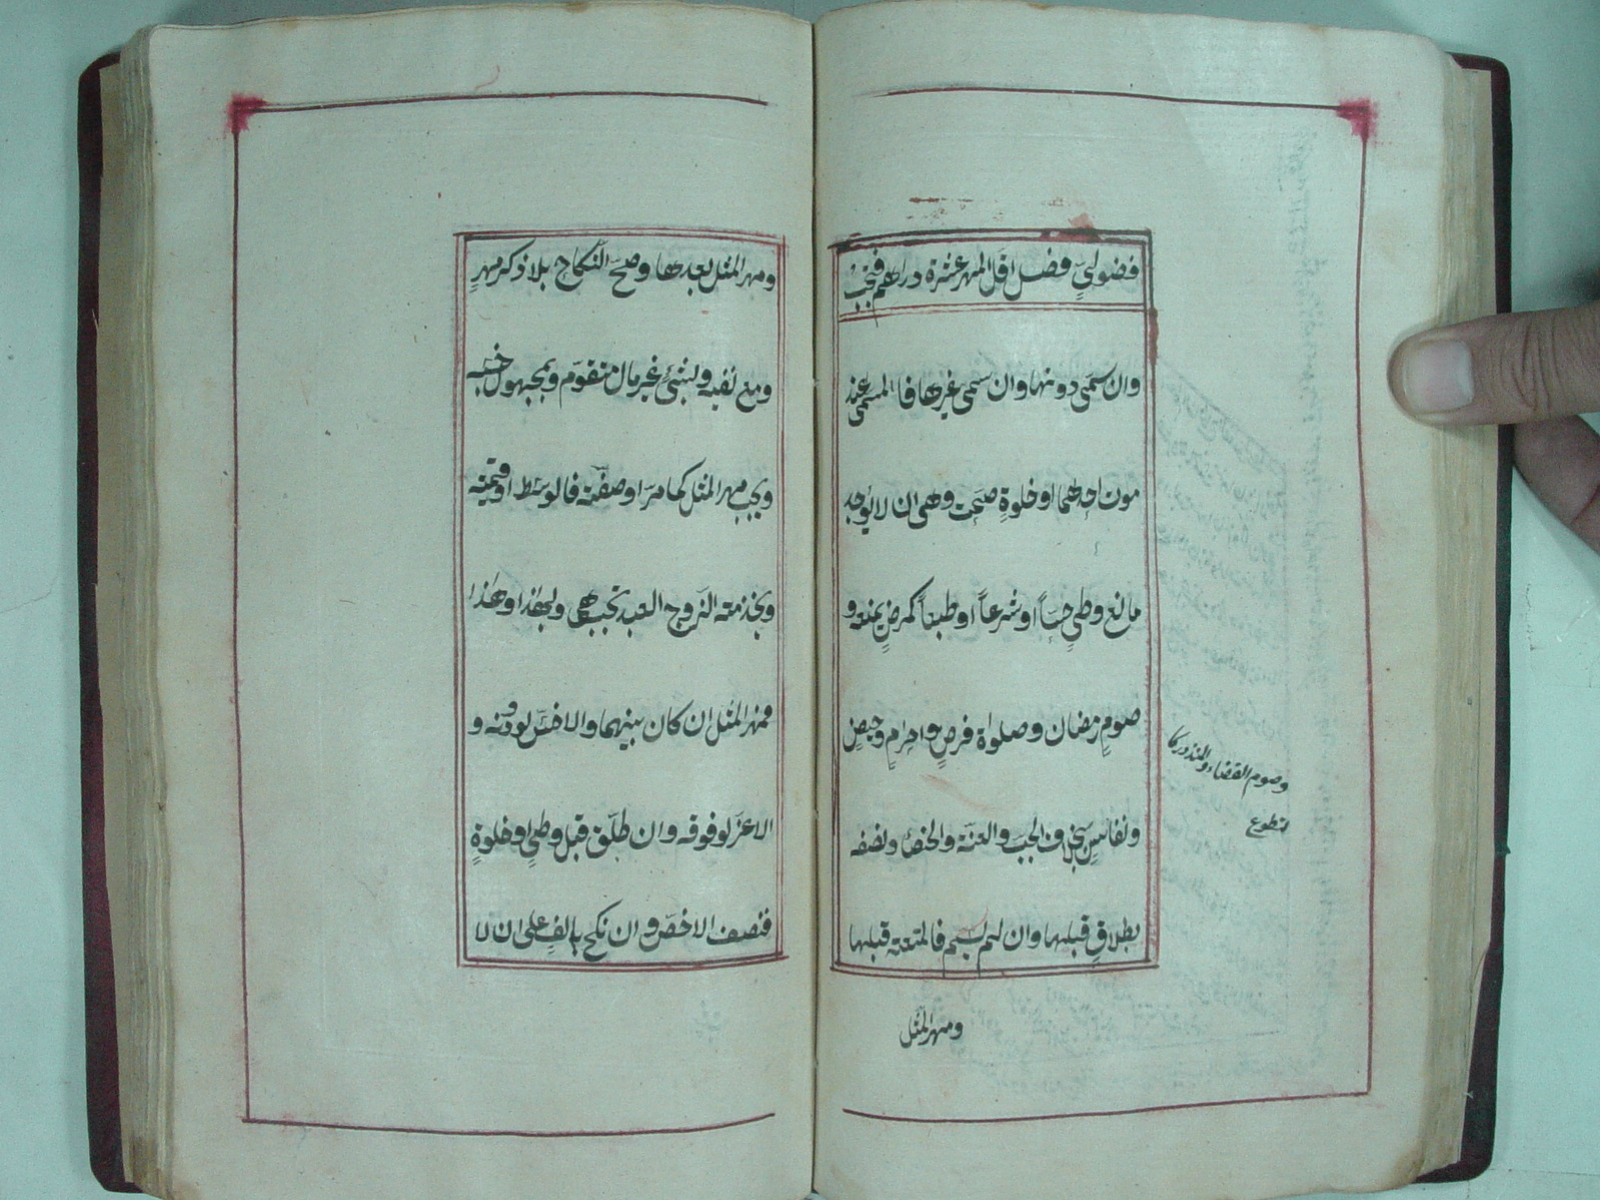 فضوليٍّ فصل اقل المهر عشرة دراهم فتجب
وان سمى دونها وان سمى غيرها فالمسمى عند
موت احدهما او خلوةٍ صحت وهى ان لا يوجد
مانع وطىٍ حساً او شرعاً او طبعاً كمرضٍ يمنعه و
صومِ رمضان وصلوة فرضٍ واحرامٍ وحيضٍ
ونفاسٍ بخلاف الجب والعنة والخصا ونصفه
بطلاقٍ قبلها وان لم يسم فالمتعة قبلها
وصوم القضاء والنذور كا
لتطوع
ومهر المثل
ومهر المثل بعدها وصحّ النكاح بلا ذكر مهرٍ
ومع نفيه وبشئ غير مال متقوم وبمجهول جنسه
ويجب مهر المثل كما مرّ او صفته فالوسط او قيمته
وبخدمته الزوج العبد تجب هى وبهذا او هذا
فمهر المثل ان كان بينهما والاخس لو دونه و
الاعز لو فوقه وان طلّق قبل وطىٍ او خلوةٍ
فنصف الاخص وان نكح بالفٍ على ان لا